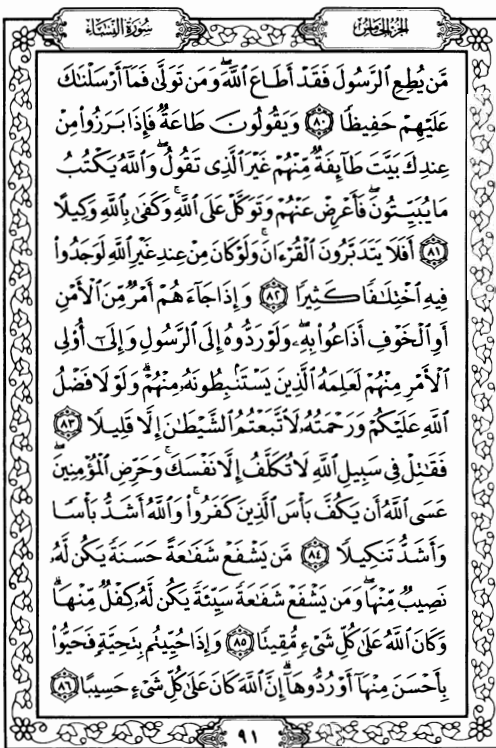 سُورَةُ النِّسَاءِ
الجُزْءُ الخَامِسُ
مَّن يُطِعِ ٱلرَّسُولَ فَقَدْ أَطَاعَ ٱللَّهَ ۖ وَمَن تَوَلَّىٰ فَمَآ أَرْسَلْنَٰكَ
عَلَيْهِمْ حَفِيظًا ٨٠ وَيَقُولُونَ طَاعَةٌ فَإِذَا بَرَزُوا۟ مِنْ
عِندِكَ بَيَّتَ طَآئِفَةٌ مِّنْهُمْ غَيْرَ ٱلَّذِى تَقُولُ ۖ وَٱللَّهُ يَكْتُبُ
مَا يُبَيِّتُونَ ۖ فَأَعْرِضْ عَنْهُمْ وَتَوَكَّلْ عَلَى ٱللَّهِ ۚ وَكَفَىٰ بِٱللَّهِ وَكِيلًا
٨١ أَفَلَا يَتَدَبَّرُونَ ٱلْقُرْءَانَ ۚ وَلَوْ كَانَ مِنْ عِندِ غَيْرِ ٱللَّهِ لَوَجَدُوا۟
فِيهِ ٱخْتِلَٰفًا كَثِيرًا ٨٢ وَإِذَا جَآءَهُمْ أَمْرٌ مِّنَ ٱلْأَمْنِ
أَوِ ٱلْخَوْفِ أَذَاعُوا۟ بِهِۦ ۖ وَلَوْ رَدُّوهُ إِلَى ٱلرَّسُولِ وَإِلَىٰٓ أُو۟لِى
ٱلْأَمْرِ مِنْهُمْ لَعَلِمَهُ ٱلَّذِينَ يَسْتَنۢبِطُونَهُۥ مِنْهُمْ ۗ وَلَوْلَا فَضْلُ
ٱللَّهِ عَلَيْكُمْ وَرَحْمَتُهُۥ لَٱتَّبَعْتُمُ ٱلشَّيْطَٰنَ إِلَّا قَلِيلًا ٨٣
فَقَٰتِلْ فِى سَبِيلِ ٱللَّهِ لَا تُكَلَّفُ إِلَّا نَفْسَكَ ۚ وَحَرِّضِ ٱلْمُؤْمِنِينَ ۖ
عَسَى ٱللَّهُ أَن يَكُفَّ بَأْسَ ٱلَّذِينَ كَفَرُوا۟ ۚ وَٱللَّهُ أَشَدُّ بَأْسًا
وَأَشَدُّ تَنكِيلًا ٨٤ مَّن يَشْفَعْ شَفَٰعَةً حَسَنَةً يَكُن لَّهُۥ
نَصِيبٌ مِّنْهَا ۖ وَمَن يَشْفَعْ شَفَٰعَةً سَيِّئَةً يَكُن لَّهُۥ كِفْلٌ مِّنْهَا ۗ
وَكَانَ ٱللَّهُ عَلَىٰ كُلِّ شَىْءٍ مُّقِيتًا ٨٥ وَإِذَا حُيِّيتُم بِتَحِيَّةٍ فَحَيُّوا۟
بِأَحْسَنَ مِنْهَآ أَوْ رُدُّوهَآ ۗ إِنَّ ٱللَّهَ كَانَ عَلَىٰ كُلِّ شَىْءٍ حَسِيبًا ٨٦
٩١